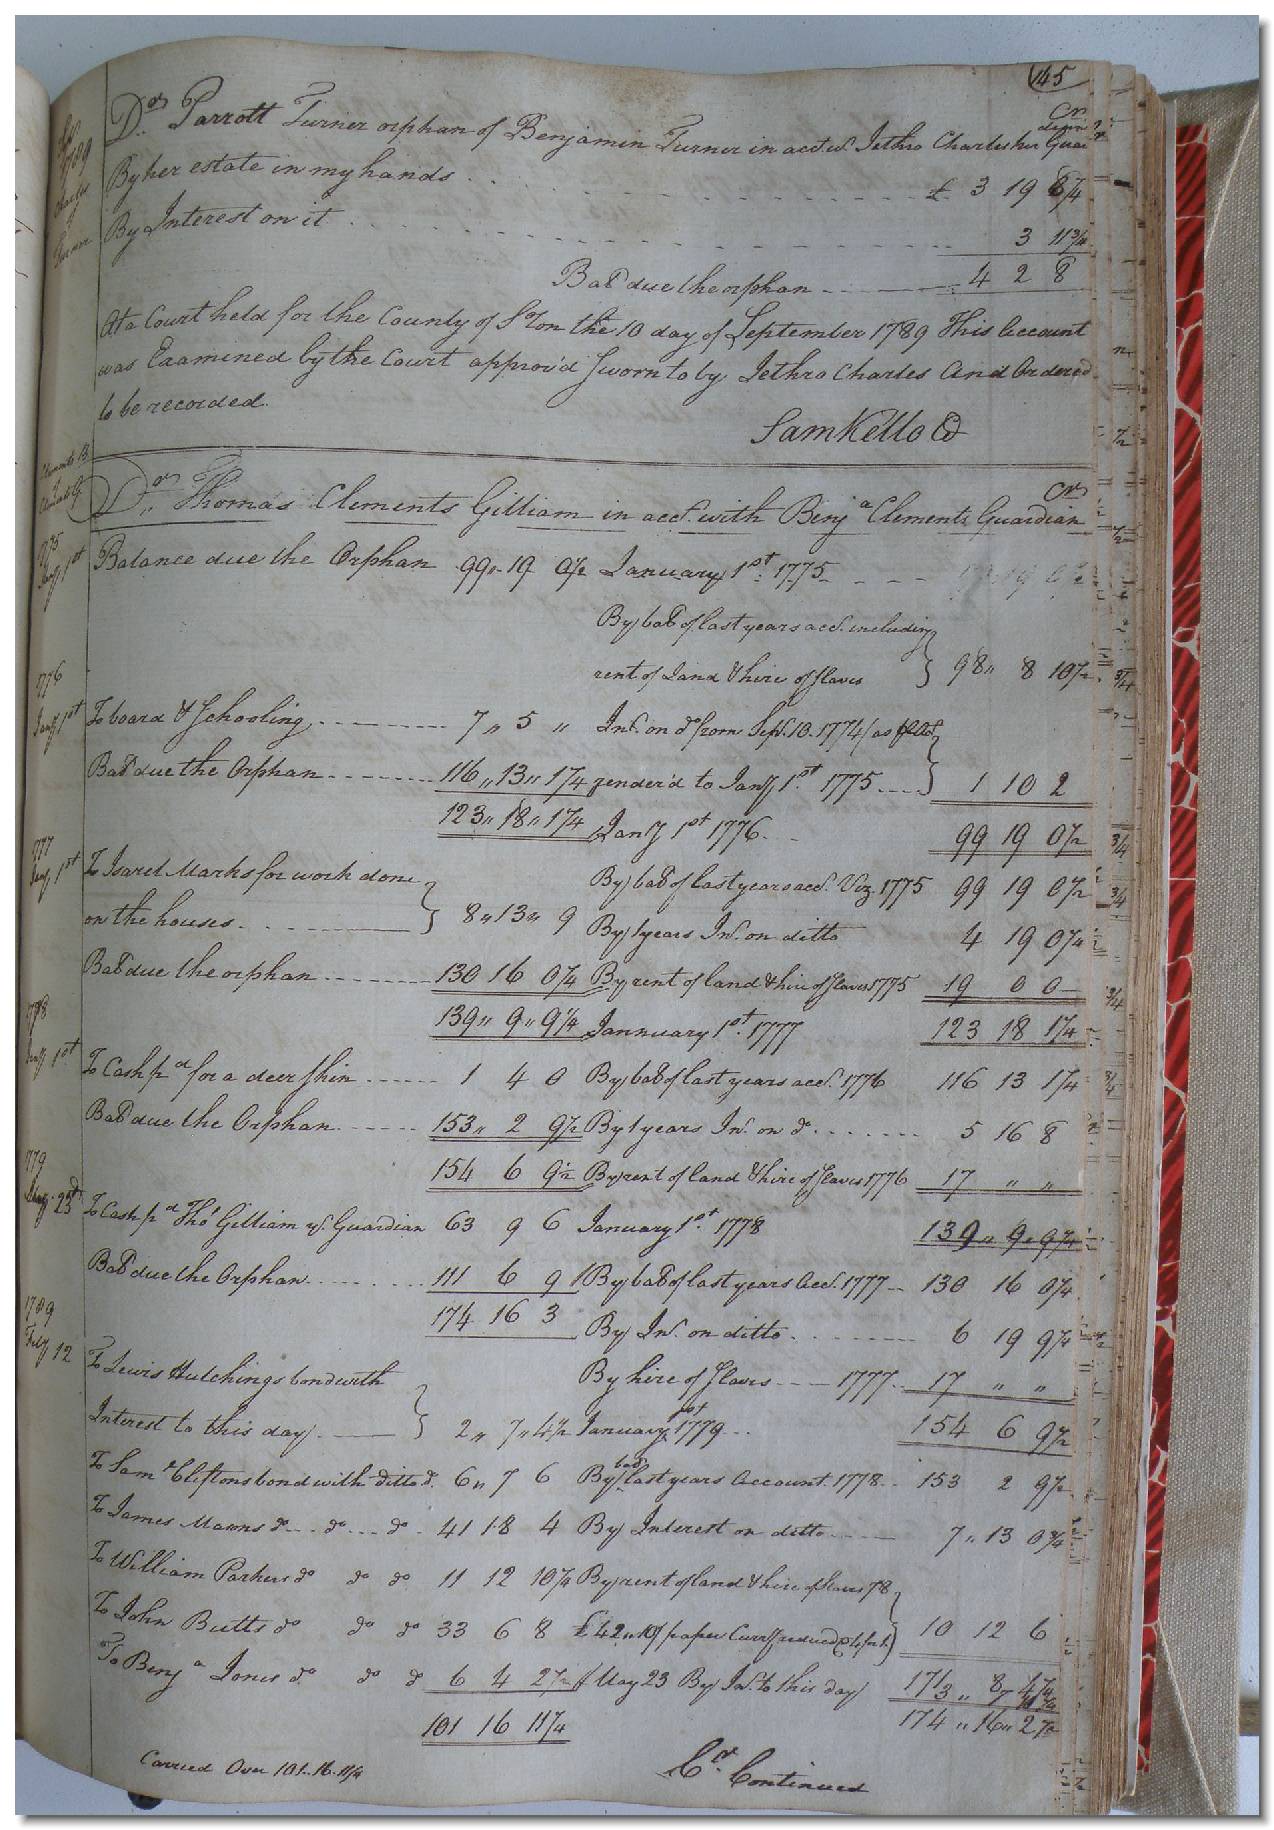 145
Cr
Dr. Parrott Turner orphan of Benjamin Turner in acct. wt. Jethro Charles her Guar
By her estate in my hands £ 3 19
By Interest on it 3 11 3/4
Bal. due the orphan 4 2 8
At a Court held for the County of Soton the 10 day of September 1789 This Account
was Examined by the Court approv'd Sworn to by Jethro Charles And Ordered
to be recorded.
Sam Kello
Dr. Thomas Clements Gilliam in acct. with Benja Clements Guardian Cr
Balance due the Orphan 99 " 19 0 1/2 January 1st 1775
By bal of last years acct. including
rent of Land & hire of Slaves } 98 " 8 10 1/2
1776
Jany 1st To board & Schooling 7 " 5 " Int. on do from Sepr. 10. 1774 (as
Bal due the Orphan 116 " 13 " 1 1/4 render'd to Jany 1st 1775 } 1 10 2
123 " 18 " 1 1/4 Jany 1st 1776 99 19 0 1/2
Jany 1st To Israel Marks for work done By bal of last years acct. Viz. 1775 99 19 0 1/2
on the houses } 8 " 13 " 9 By 1 years Int. on ditto 4 19 0 3/4
Bal due the orphan 130 16 0 1/4 By rent of land & hire of slaves 1775 19 0 0
139 " 9 " 9 1/4 Jannuary 1st. 1777 123 18 1 1/4
1st To Cash pd for a deer skin 1 4 0 By bal of last years acct. 1776 116 13 1 1/4
Bal due the Orphan 153 " 2 9 1/2 By 1 years Int. on do 5 16 8
154 6 9 1/2 By rent of land & hire of slaves 1776 17 " "
23d To Cash pd Thos Gilliam Guardian 63 9 6 January 1st. 1778 139 " 9 " 9 1/4
Bal due the Orphan 111 6 9 By bal of last years Acct. 1777 130 16 0 1/4
174 16 3 By Int. on ditto 6 19 9 1/4
1789
Feby 12
To Lewis Hutchings bond with By hire of slaves 1777 17 " "
Interest to this day } 2 " 7 " 4 1/2 January 1st 1779 154 6 9 1/2
To Saml Cliftons bond with ditto do. 6 " 7 6 By bal last years Account. 1778 153 2 9 1/2
To James Manns do do do 41 18 4 By Interest on ditto 7 " 13 0 3/4
To William Parkers do do do 11 12 10 1/4 By rent of land & hire of slaves 78
To John Butts do do do 33 6 8 £42 " 10/ paper Curry reduced @ 4 for 1.) 10 12 6
To Benja Jones do. do do 6 4 2 1/2 May 23 By Int. to this day 171 8
101 16 11 1/4 174 " 16 " 2
Carried Over 101 .. 16 .. 11 1/4
Cr. Continued